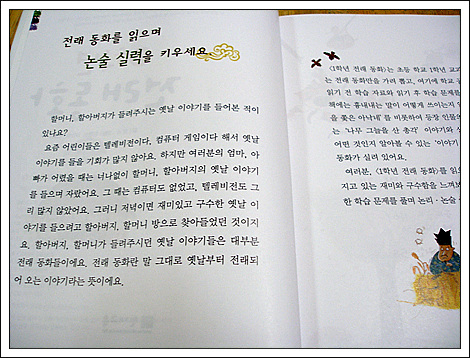 전래 동화를 읽으며
논술 실력을 키우세요
할머니, 할아버지가 들려주시는 옛날 이야기를 들어본 적이
있나요?
요즘 어린이들은 텔레비전이다, 컴퓨터 게임이다 해서 옛날
이야기를 들을 기회가 많지 않아요. 하지만 여러분의 엄마, 아
빠가 어렸을 때는 너나없이 할머니, 할아버지의 옛날 이야기
를 들으며 자랐어요. 그 때는 컴퓨터도 없었고, 텔레비전도 그
리 많지 않았어요. 그러니 저녁이면 재미있고 구수한 옛날 이
야기를 들으려고 할아버지, 할머니 방으로 찾아들었던 것이지
요. 할아버지, 할머니가 들려주시던 옛날 이야기들은 대부분
전래 동화들이에요. 전래 동화란 말 그대로 옛날부터 전래되
어 오는 이야기라는 뜻이에요.
《1학년 전래 동화》는 초등 학교 1학년 교과
는 전래 동화만을 가려 뽑고, 여기에 학습
읽기 전 학습 자료와 읽기 후 학습 문제를
책에는 흉내내는 말이 어떻게 쓰이는지
을 쫓은 아낙네'를 비롯하여 등장 인물
는 '나무 그늘을 산 총각' 이야기와
어떤 것인지 알아볼 수 있는 '이야기
동화가 실려 있어요.
여러분, 《1학년 전래 동화》를 읽으
지고 있는 재미와 구수함을 느껴보
한 학습 문제를 풀며 논리·논술